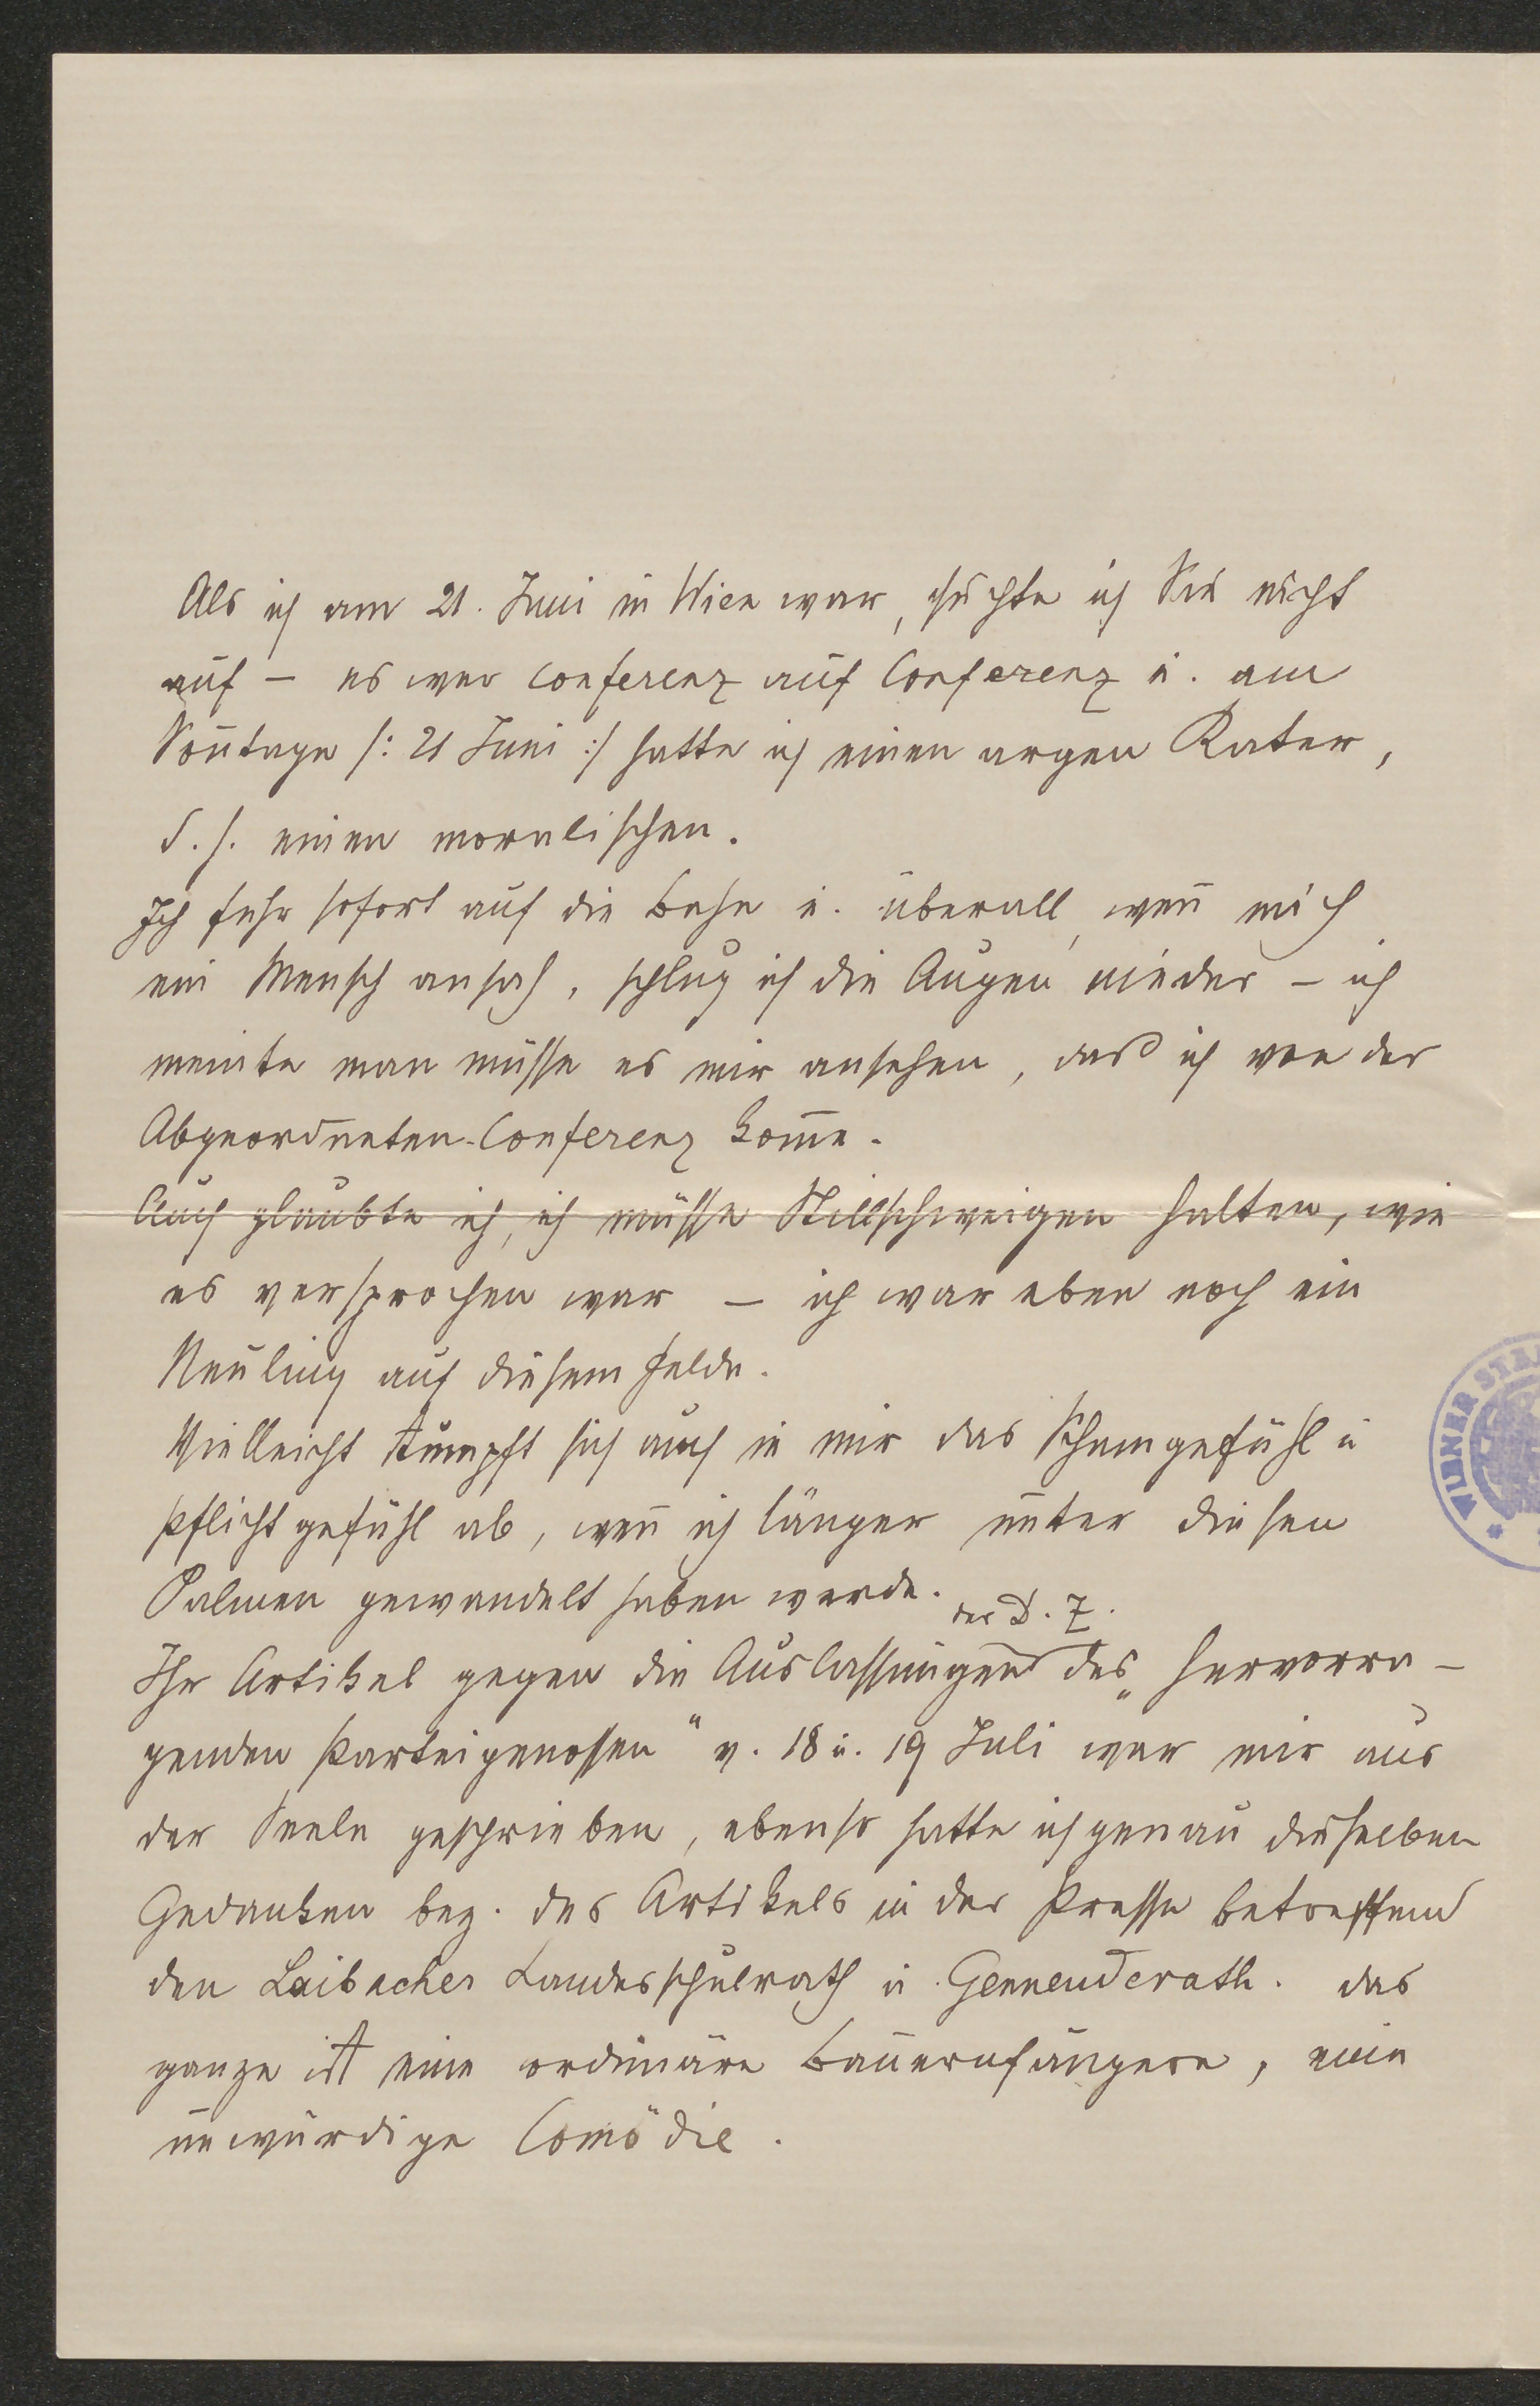 Als ich am 21. Juni in Wien war, suchte ich Sie nicht
auf – es war Conferenz auf Conferenz u. am
Soñtage /: 21 Juni :/ hatte ich einen argen Kater,
d. h. einen moralischen.
Ich fuhr sofort auf die Bahn u. überall, weñ mich
ein Mensch ansah, schlug ich die Augen nieder – ich
meinte man müsse es mir ansehen, daß ich von der
Abgeordneten-Conferenz kom̄e.
Auch glaubte ich, ich müsse Stillschweigen halten, wie
es versprochen war – ich war eben noch ein
Neuling auf diesem Felde.
Vielleicht stumpft sich auch in mir das Schamgefühl u
Pflichtgefühl ab, weñ ich länger unter diesen
Palmen gewandelt haben werde.
der D. Z.
Ihr Artikel gegen die Auslassungen des „hervorra-
genden Parteigenossen“ v. 18 u. 19 Juli war mir aus
der Seele geschrieben, ebenso hatte ich genau dieselben
Gedanken bez. des Artikels in der Presse betreffend
den Laibacher Landesschulrath u. Gemeinderath. das
ganze ist eine ordinäre Bauernfängere, eine
unwürdige Comödie.
WIENER STA